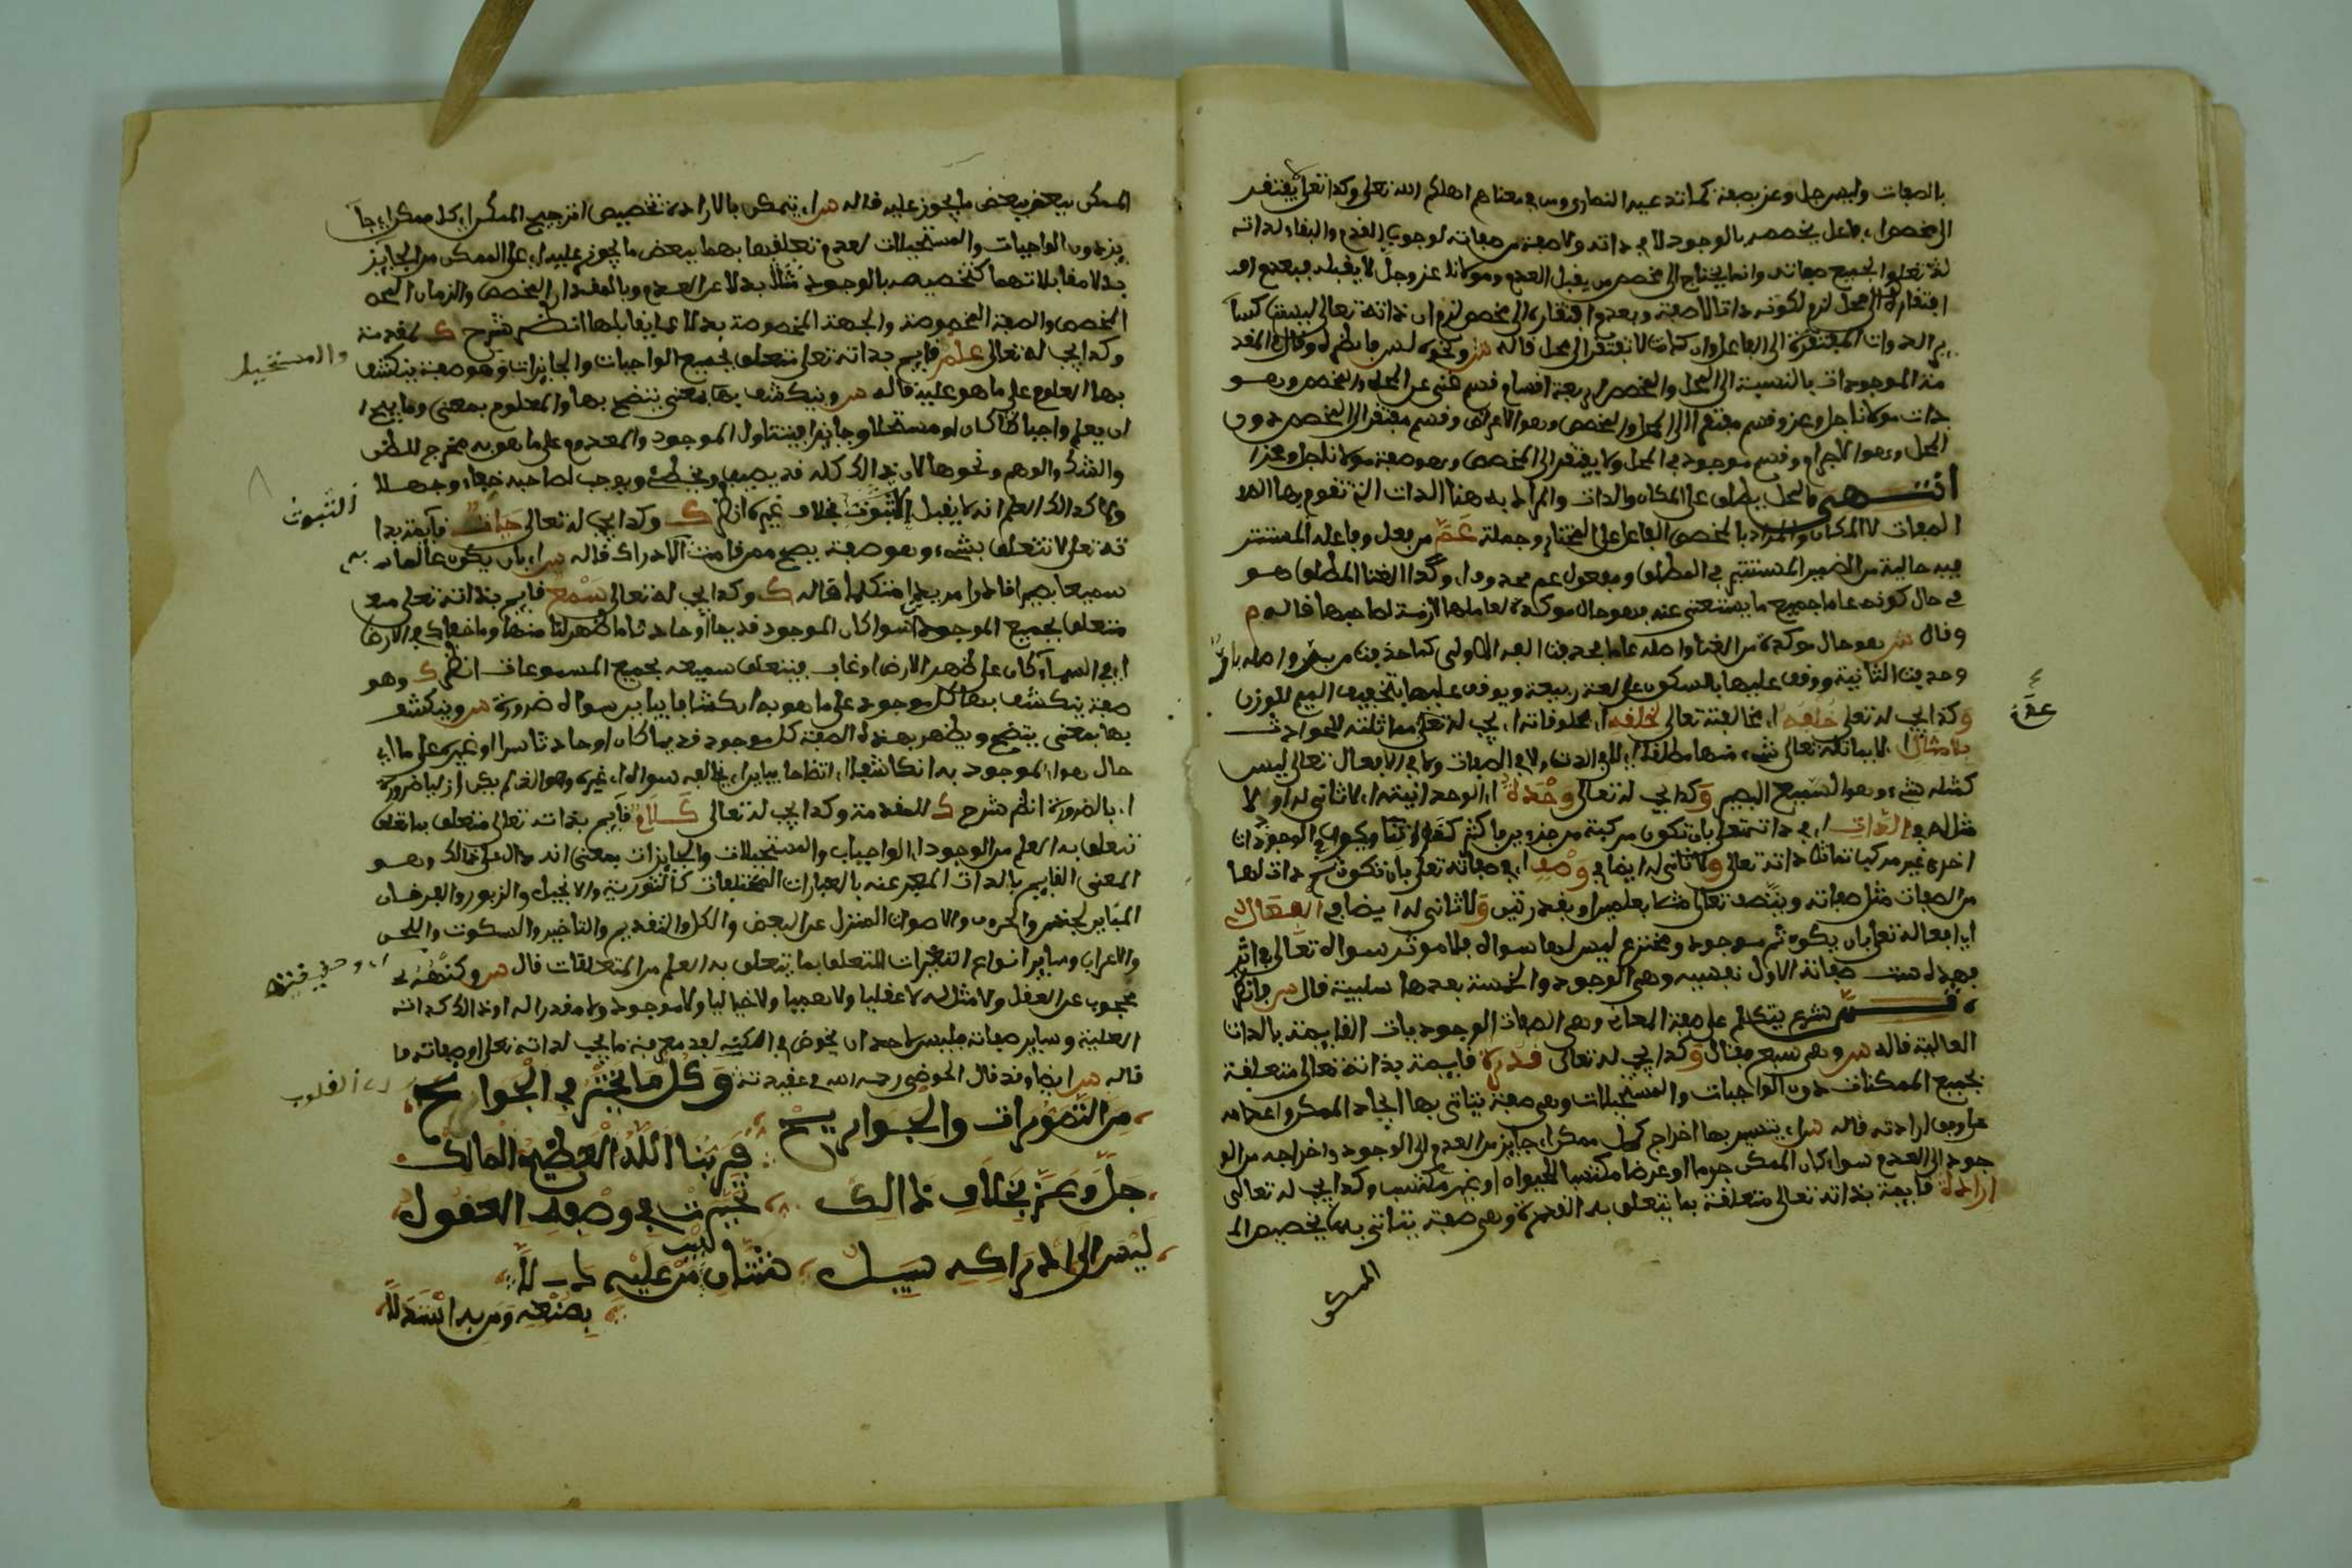 بالصفات وليس جل وعز بصفة كما تدعيه النصارى ومن في معناهم اهلكم الله تعلى وكذا تعلى يفتقر
الى مخصص اي فاعل يخصصه بالوجود لا في ذاته ولا صفة من صفاته لوجوب القدم والبقاء لذاته
تعلى ولجميع صفاته وانما يحتاج الى مخصص من يقبل العدم ومولانا عز وجل لا يقبله فبعدم
افتقاره الى محل لزم كونه ذاتا لا صفة وبعدم افتقاره الى مخصص لزم ان ذاته تعالى ليست كسائر
الذوات المفتقرة الى الفاعل وان كانت لا تفتقر الى محل قاله
الموجودات بالنسبة الى المحل والمخصص اربعة اقسام قسم غني عن المحل والمخصص وهو
ذات مولانا جل وعز وقسم مفتقر الى المحل والمخصص وهو الاعراض وقسم مفتقر الى المخصص دون
المحل وهو الاجرام وقسم موجود في المحل ولا يفتقر الى المخصص وهو صفة مولانا جل وعز
انتهى والمحل يطلق على المكان والذات والمراد به هنا الذات التي تقوم بها
الصفات لا المكان والمراد بالمخصص الفاعل المختار وجملة عم من فعل وفاعله المستتر
فيه حالية من الضمير المستتر في المطلق ومفعول عم محذوف اي وكذا الغنا المطلق هو
في حال كونه عاما جميع ما يستغنى عنه فهو حال موكدة لعاملها لازمة لصاحبها قاله م
وقال ش هو حال موكدة من الغنا واصله عاما بحذف الفه الاولى كما حذفت من بر واصله بار
وحذفت الثانية ووقف عليها بالسكون على لغة ربيعة ويوقف عليها بتخفيف الميم للوزن
وكذا يجب له تعلى خلفه اي مخالفته تعالى لخلقه اي مخلوقاته اي يجب له تعلى مماثلته للحوادث
بلا مثال اي لا يماثله تعالى شيء منها مطلقا لا في الذات ولا في الصفات ولا في الافعال تعالى ليس
كمثله شيء وهو السميع البصير وكذا يجب له تعالى وحدة اي الوحدانية اي لا ثاني له اي لا
مثل له في الذات اي في ذاته تعلى بان تكون مركبة من جزءين فاكثر
اخرى غير مركبة تماثل ذاته تعالى ولا ثاني له ايضا في وصف اي في صفاته تعلى بان تكون ثم ذات لها
من الصفات مثل صفاته ويتصف تعالى مثلا بعلمين او بقدرتين ولا ثاني له ايضا في الفعال
اي افعاله تعلى بان يكون ثم موجود ومخترع ليس لها سواه فلا موثر سواه تعالى في اثر
فهذه ست صفات الاولى نفسية وهي الوجود والخمسة بعدها سلبية قال
ثم شرع يتكلم على صفة المعاني وهي الصفات الوجوديات القايمة بالذات
العالية قاله وهي سبع فقال وكذا يجب له تعالى قدرة قايمة بذاته تعالى متعلقة
بجميع الممكنات دون الواجبات والمستحيلات وهي صفة يتاتى بها ايجاد الممكن واعدامه
على وفق ارادته قاله اي يتيسر بها اخراج كل ممكن اي جايز من العدم الى الوجود واخراجه من الو
جود الى العدم سواء كان الممكن جرما او عرضا مكتسبا للحيوان او غير مكتسب وكذا يجب له تعالى
ارادة قايمة بذاته تعالى متعلقة بما تتعلق به القدرة وهي صفة يتاتى بها تخصيص الم
الممكن
عم
الممكن ببعض ما يجوز عليه قاله اي يتمكن بالارادة تخصيص اي ترجيح الممكن اي كل ممكن اي جا
يز دون الواجبات والمستحيلات لعدم تعلقها بهما ببعض ما يجوز عليه اي على الممكن من الجايز
بدلا مقابلاتهما كتخصيصه بالوجود مثلا بدلا عن العدم وبالمقدار المخصوص والزمان
المخصوص والصفة المخصوصة والجهة المخصوصة بدلا عما يقابلها انظر شرح ك للمقدمة
وكذا يجب له تعالى علم قايم بذاته تعلى متعلق بجميع الواجبات والجايزات وهو صفة ينكشف
والمستحيلا
بها المعلوم على ما هو عليه قاله وينكشف بها بمعنى يتضح بها والمعلوم بمعنى وما يصح
ان يعلم واجبا كان او مستحيلا وجايزا فيتناول الموجود والمعدوم على ما هو به مخرج للظن
والشك والوهم ونحوها لان ذالك كله قد يصيب ويخطئ ويوجب لصاحبه خفاء وجهلا
ولا كذالك العلم انه لا يقبل الثبوت بخلاف غيره انظر ك وكذا يجب له تعالى حيات قايمة بذا
الثبوت
ته تعلى لا تتعلق بشيء وهو صفة يصح ممن قامت الادراك قاله اي بان يكون عالما
به
سميعا بصيرا قادرا مريدا متكلما قاله ك وكذا يجب له تعالى سمع قايم بذاته تعلى
متعلق بجميع الموجودات سواء كان الموجود قديما او حادثا ما ظهر لنا منها وما خفي في الارض
او في السماء كان على ظهر الارض او غاب فيتعلق سمعه بجميع المسموعات انظر ك وهو
صفة ينكشف بها كل موجود على ما هو به انكشافا يباين سواه ضرورة وينكشف
بها بمعنى يتضح ويظهر بهذه الصفة كل موجود قديما كان او حادثا سرا او غيره على ما اي
حال هو الموجود به انكشافا اي اتضاحا يباين اي يخالف سواه اي غيره
اي بالضرورة انظر شرح ك للمقدمة وكذا يجب له تعالى كلام قايم بذاته تعالى متعلق بما تعلق
تتعلق به العلم من الوجود اي الواجبات والمستحيلات والجايزات بمعنى انه دال على ذالك وهو
المعنى القايم بالذات المعبر عنه بالعبارات المختلفات كالتورية والانجيل والزبور والفرقان
المباين لجنس الحروف والاصوات المنزل عن البعض والكل والتقديم والتاخير والسكوت واللحن
والاعراب وساير انواع التغيرات المتعلق بما يتعلق به العلم من المتعلقات قال وكنهه
محجوب عن العقل ولا مثل له لا عقليا ولا وهميا ولا خياليا ولا موجود ولا مقدر اله
العلية وساير صفاته فليس لاحد ان يخوض في الكنه بعد معرفة ما يجب لذاته تعلى وصفاته
قاله ايضا وقد قال الحوضي رحمه الله في عقيدته وكل ما يخطر في الجوانح
اي القلوب
من التصورات والجوارح
فربنا الله العظيم المالك
جل وعز بخلاف ذالك
تحيرت في وصفه العقول
ليس الى ادراكه سبيل
شتان من عليه دلا
بصنعه ومن به استدلا